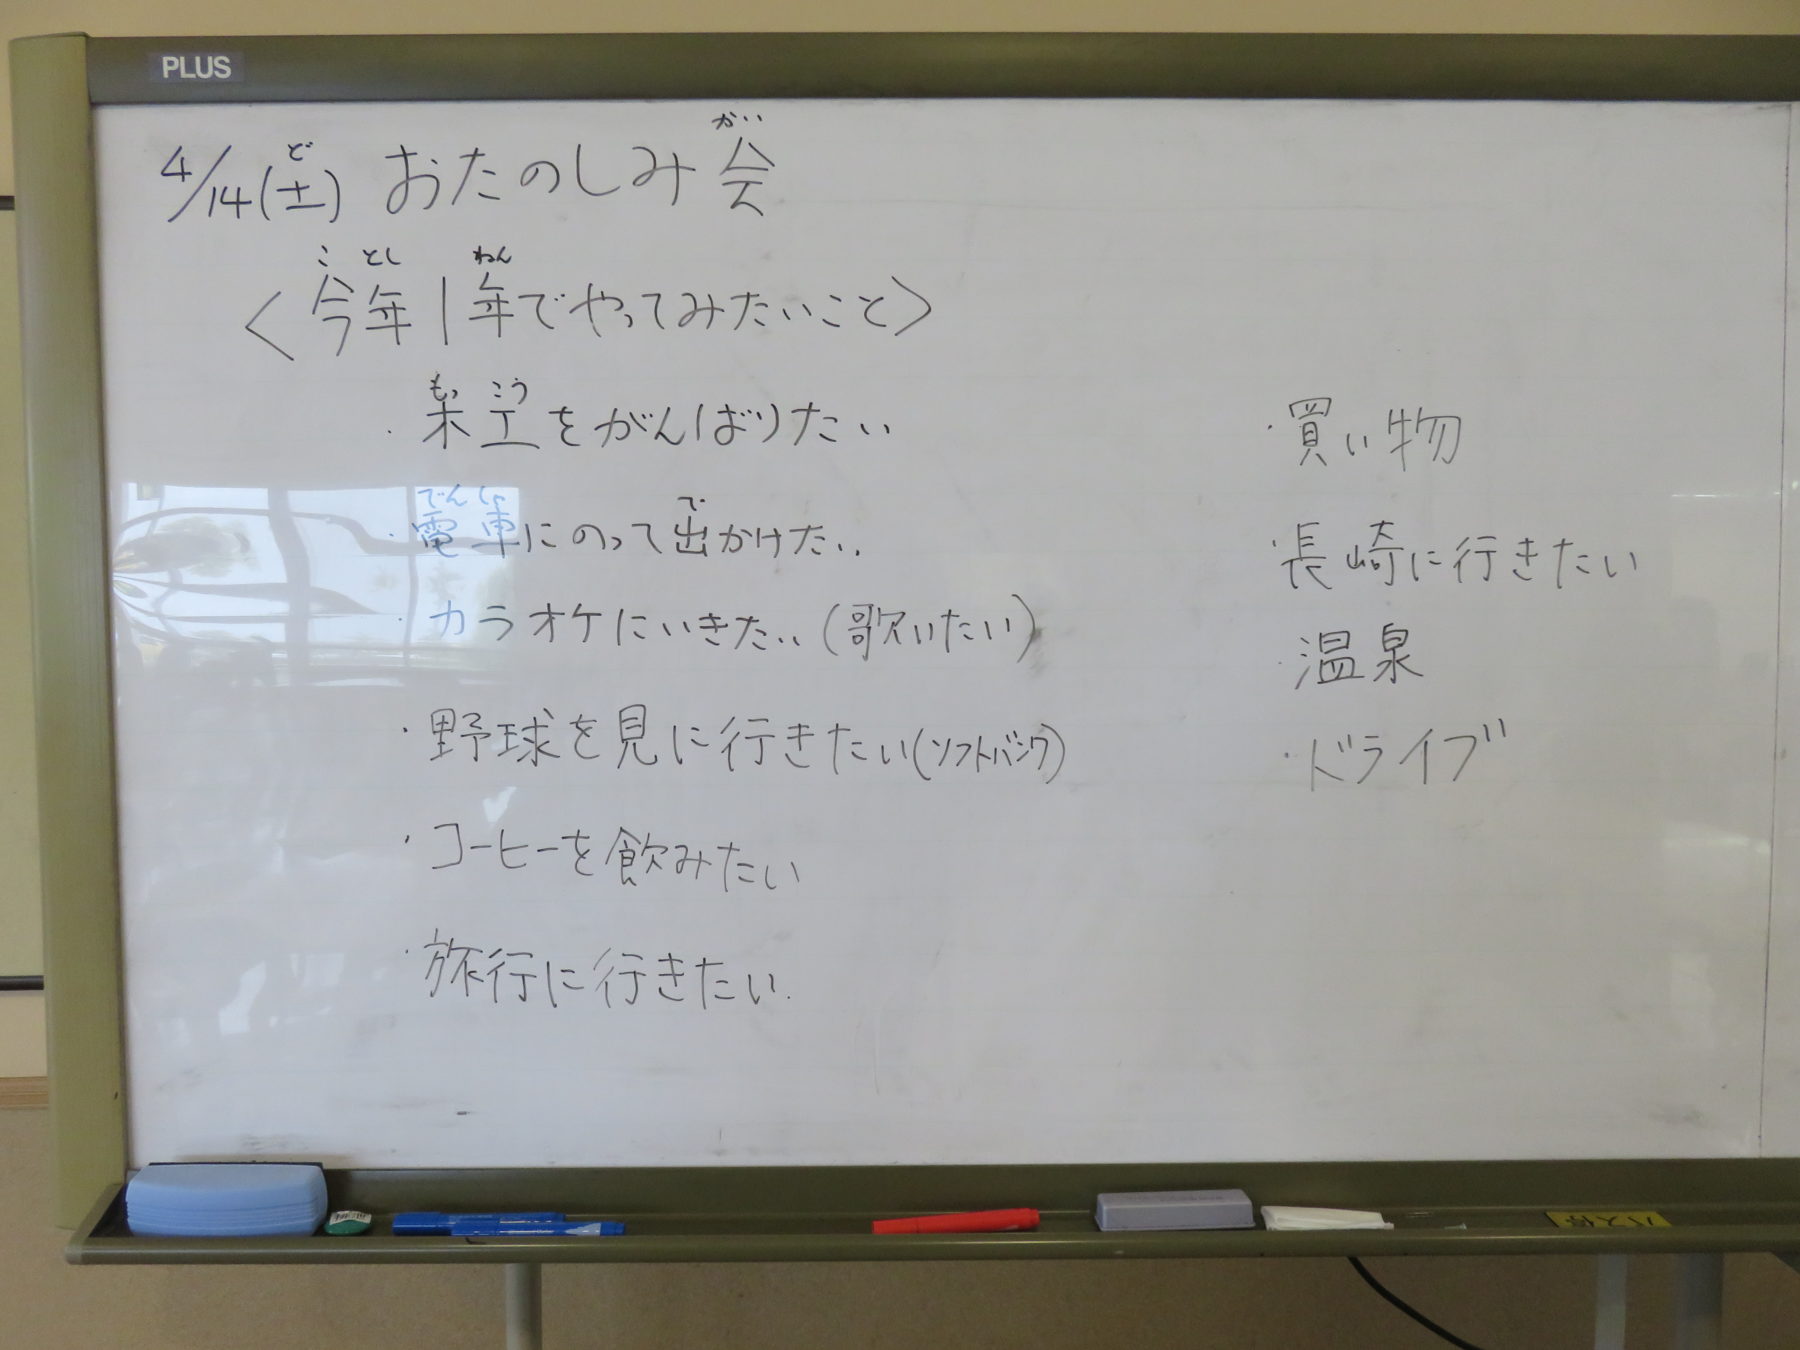 PLUS
4/14(土) おたのしみ会
ど がい
<今年1年でやってみたいこと>
ことし ねん
・木工をがんばりたい
もっこう
・電車にのって出かけたい
でんしゃ で
・カラオケにいきたい(歌いたい)
・野球を見に行きたい(ソフトバンク)
・コーヒーを飲みたい
・旅行に行きたい
・買い物
・長崎に行きたい
・温泉
・ドライブ